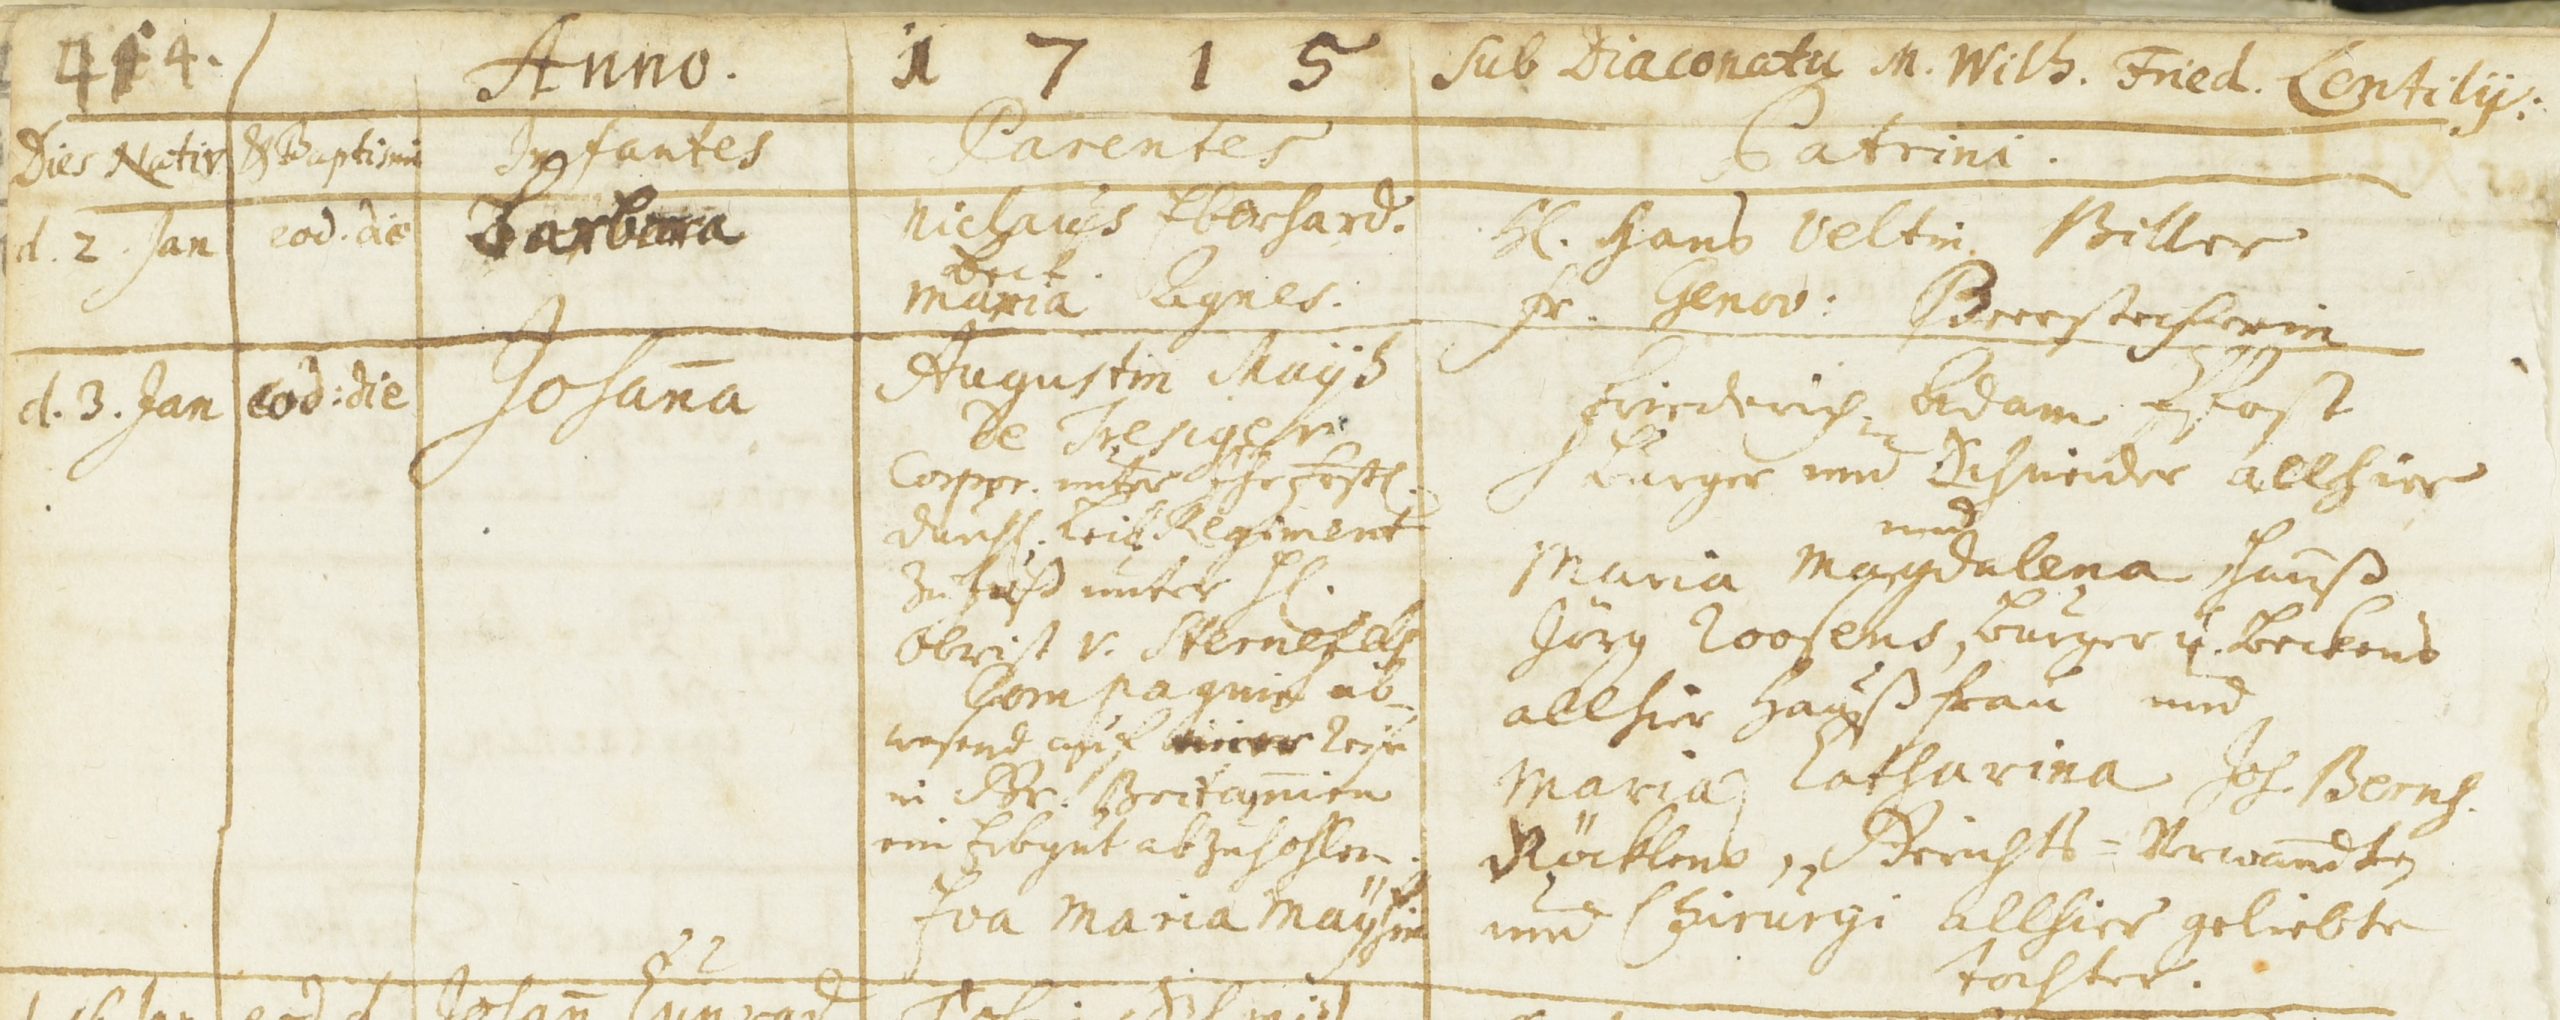 414. Anno. 1 7 1 5 Sub Diaconatu M. Wilh. Fried. Lentilij:
Dies Nativ & Baptismi Infantes Parentes Patrini.
d. 2. Jan eod. die Barbara
Niclaus Eberhard.
Beck.
Maria Agnes.
H. Hans Veltin Biller
Fr. Genov: Beerstecherin
d. 3. Jan eod: die Johaña
Augustin Mayß
De Tresiger
Corpor. unter Ihr Hfstl.
Durchl. Leib Regiment
zu Fuß unter H.
Obrist v. Sternefels
Compagnie ab-
wesend auf einer Reiß
in Gr. Britañien
ein Erbgut abzuhohlen.
Eva Maria Maÿßin
Friederich Adam Pfost
Burger und Schneider allhier
und
Maria Magdalena Hañß
Jörg Roosens, Burger u. Beckens
allhier Haußfrau und
Maria Catharina Joh. Bernh.
Röcklens, Gerichts=Verwandten
und Chirurgi allhier geliebte
Tochter.
eod. d. Johañ Cunrad